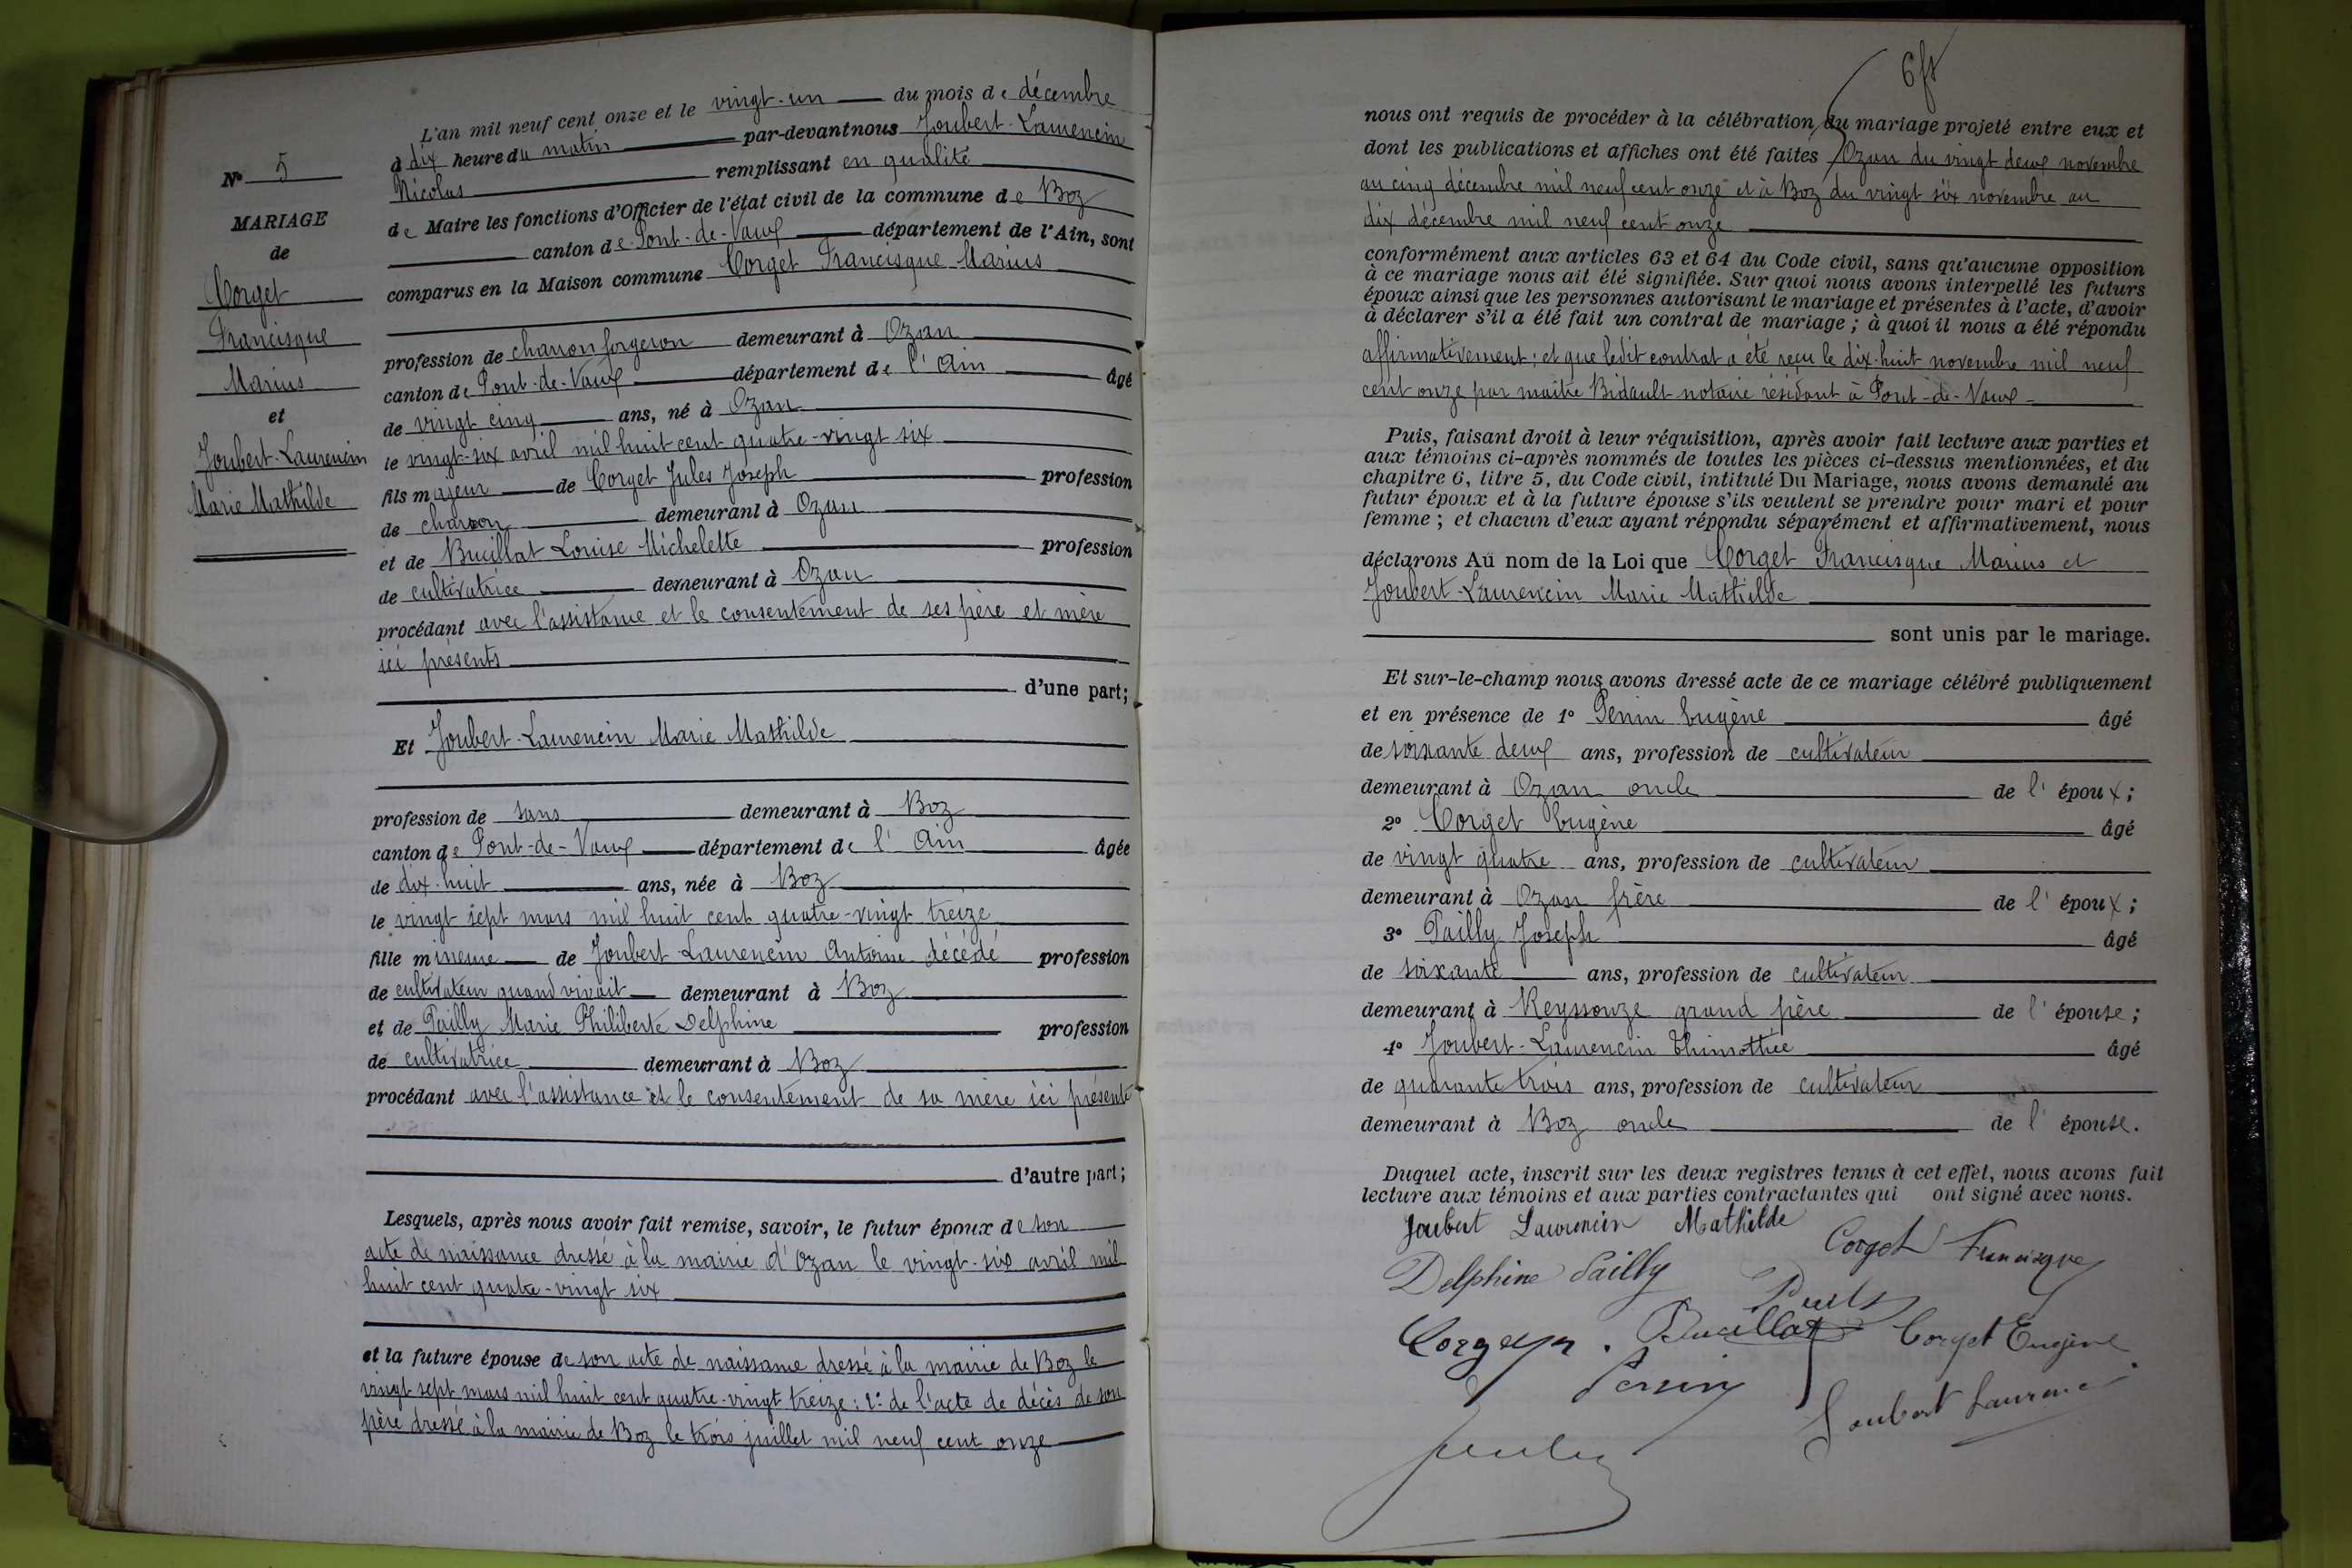 L'an mil neuf cent onze et le vingt-un du mois de décembre
à dix heure du matin par-devant nous Joubert-Laurencin
Nicolas remplissant en qualité
de Maire les fonctions d'Officier de l'état civil de la commune de Boz
canton de Pont-de-Vaux département de l'Ain, sont
comparus en la Maison commune Corget Francisque Marius
profession de charron forgeron demeurant à Ozan
canton de Pont-de-Vaux département de l'Ain âgé
de vingt cinq ans, né à Ozan
le vingt-six avril mil huit cent quatre-vingt six
fils majeur de Corget Jules Joseph profession
de charron demeurant à Ozan
et de Bucillat Louise Michelette profession
de cultivatrice demeurant à Ozan
procédant avec l'assistance et le consentement de ses père et mère
ici présents
d'une part;
Et Joubert-Laurencin Marie Mathilde
profession de sans demeurant à Boz
canton de Pont-de-Vaux département de l'Ain âgée
de dix-huit ans, née à Boz
le vingt sept mars mil huit cent quatre-vingt treize
fille mineure de Joubert-Laurencin Antoine décédé profession
de cultivateur quand vivait demeurant à Boz
et de Pailly Marie Philiberte Delphine profession
de cultivatrice demeurant à Boz
procédant avec l'assistance et le consentement de sa mère ici présente
d'autre part;
Lesquels, après nous avoir fait remise, savoir, le futur époux de son
acte de naissance dressé à la mairie d'Ozan le vingt-six avril mil
huit cent quatre-vingt six
et la future épouse de son acte de naissance dressé à la mairie de Boz le
vingt sept mars mil huit cent quatre-vingt treize : 2° de l'acte de décès de son
père dressé à la mairie de Boz le trois juillet mil neuf cent onze
N° 5
MARIAGE
de
Corget
Francisque
Marius
et
Joubert-Laurencin
Marie Mathilde
nous ont requis de procéder à la célébration du mariage projeté entre eux et
dont les publications et affiches ont été faites Ozan du vingt deux novembre
au cinq décembre mil neuf cent onze et à Boz du vingt six novembre au
dix décembre mil neuf cent onze
conformément aux articles 63 et 64 du Code civil, sans qu'aucune opposition
à ce mariage nous ait été signifiée. Sur quoi nous avons interpellé les futurs
époux ainsi que les personnes autorisant le mariage et présentes à l'acte, d'avoir
à déclarer s'il a été fait un contrat de mariage ; à quoi il nous a été répondu
affirmativement ; et que ledit contrat a été reçu le dix-huit novembre mil neuf
cent onze par maître Bidault notaire résidant à Pont-de-Vaux
Puis, faisant droit à leur réquisition, après avoir fait lecture aux parties et
aux témoins ci-après nommés de toutes les pièces ci-dessus mentionnées, et du
chapitre 6, titre 5, du Code civil, intitulé Du Mariage, nous avons demandé au
futur époux et à la future épouse s'ils veulent se prendre pour mari et pour
femme ; et chacun d'eux ayant répondu séparément et affirmativement, nous
déclarons Au nom de la Loi que Corget Francisque Marius et
Joubert-Laurencin Marie Mathilde
sont unis par le mariage.
Et sur-le-champ nous avons dressé acte de ce mariage célébré publiquement
et en présence de 1° Penin Eugène âgé
de soixante deux ans, profession de cultivateur
demeurant à Ozan oncle de l'époux ;
2° Corget Eugène âgé
de vingt quatre ans, profession de cultivateur
demeurant à Ozan frère de l'époux ;
3° Pailly Joseph âgé
de soixante ans, profession de cultivateur
demeurant à Reyssouze grand père de l'épouse ;
4° Joubert-Laurencin Thimothée âgé
de quarante trois ans, profession de cultivateur
demeurant à Boz oncle de l'épouse.
Duquel acte, inscrit sur les deux registres tenus à cet effet, nous avons fait
lecture aux témoins et aux parties contractantes qui ont signé avec nous.
Joubert Laurencin Mathilde
Corget Francisque
Delphine Pailly
Bucillat
Corget Eugène